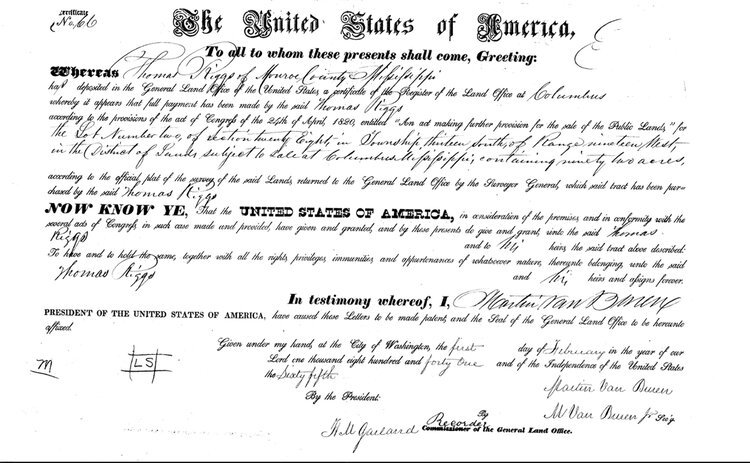 Certificate
No. 66
The United States of America,
To all to whom these presents shall come, Greeting:
Whereas Thomas Riggs of Monroe County Mississippi
has deposited in the General Land Office of the United States, a certificate of the Register of the Land Office at Columbus
whereby it appears that full payment has been made by the said Thomas Riggs
according to the provisions of the act of Congress of the 24th of April, 1820, entitled "An act making further provision for the sale of the Public Lands," for
the Lot Number two, of section twenty Eight, in Township thirteen South, of Range nineteen West,
in the District of Lands subject to Sale at Columbus Mississippi, containing ninety two acres,
according to the official plat of the survey of the said Lands, returned to the General Land Office by the Surveyor General, which said tract has been pur-
chased by the said Thomas Riggs
NOW KNOW YE, That the UNITED STATES OF AMERICA, in consideration of the premises, and in conformity with the
several acts of Congress, in such case made and provided, have given and granted, and by these presents do give and grant, unto the said Thomas
Riggs and to his heirs, the said tract above described:
To have and to hold the same, together with all the rights, privileges, immunities, and appurtenances of whatsoever nature, thereunto belonging, unto the said
Thomas Riggs and his heirs and assigns forever.
In testimony whereof, I, Martin Van Buren
PRESIDENT OF THE UNITED STATES OF AMERICA, have caused these Letters to be made patent, and the Seal of the General Land Office to be hereunto
affixed.
Given under my hand, at the City of Washington, the first day of February in the year of our
Lord one thousand eight hundred and forty one and of the Independence of the United States
the Sixty fifth
M
LS
By the President: Martin Van Buren
By M Van Buren Jr Sec'y.
H M Garland Recorder of the General Land Office.